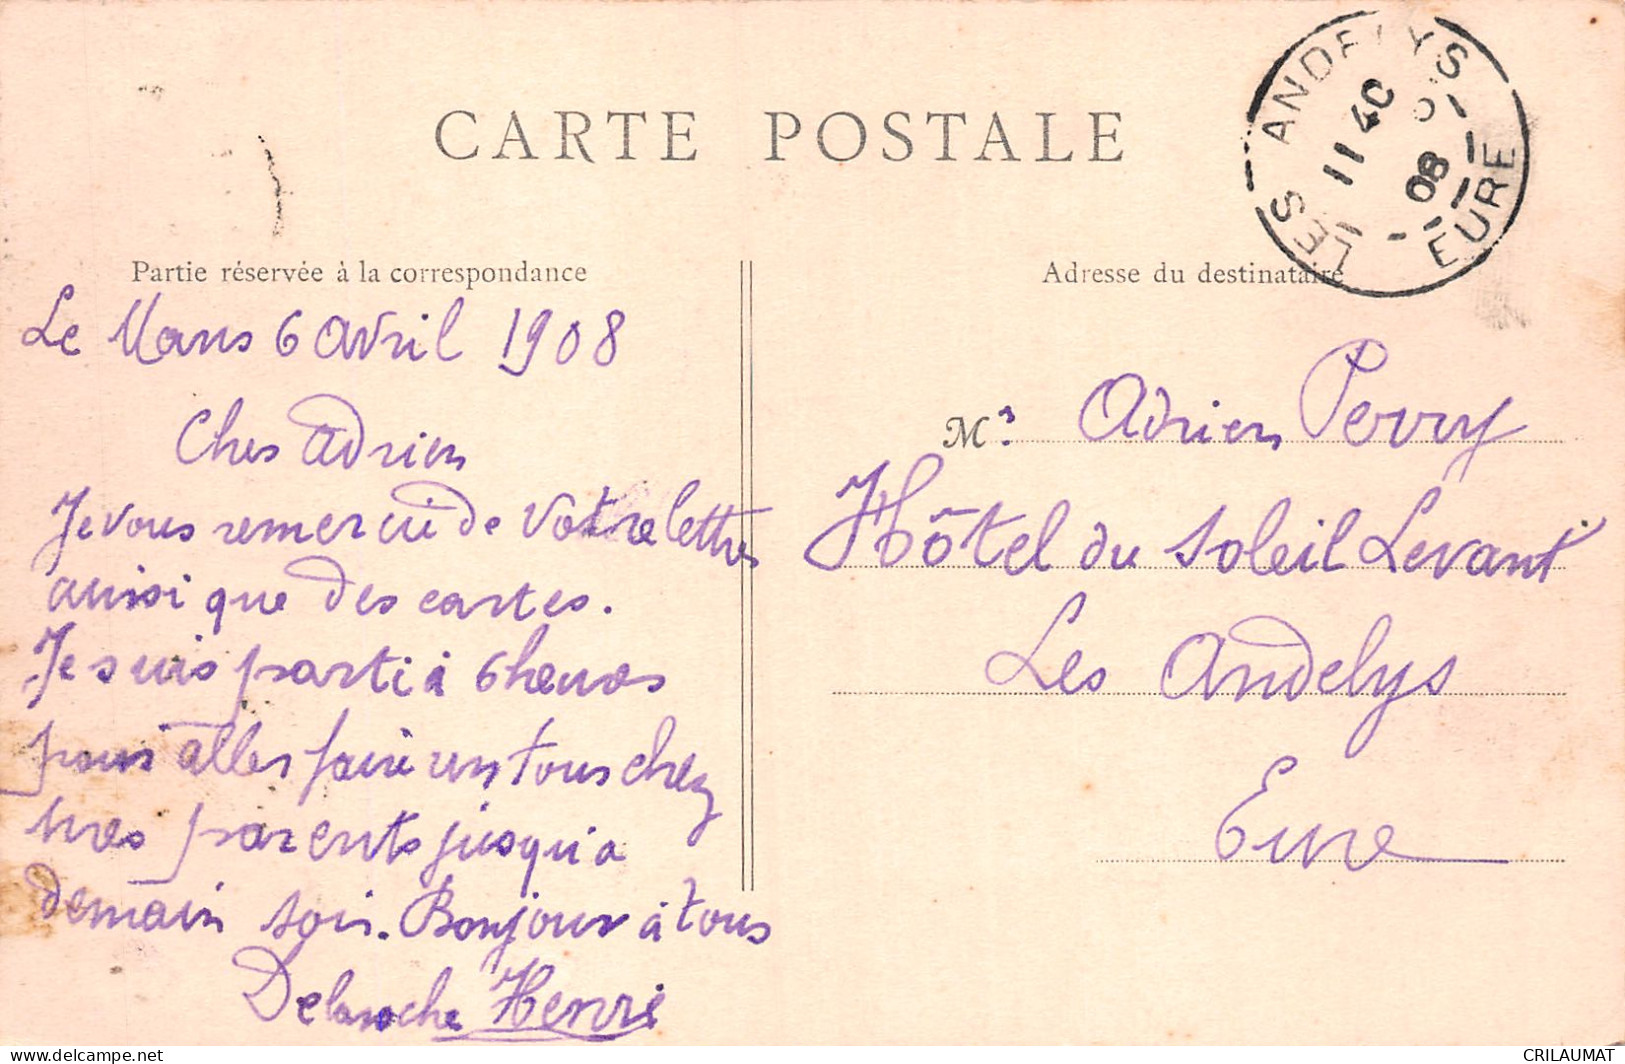 CARTE POSTALE
LES ANDELYS
11 40
08
EURE
Partie réservée à la correspondance
Le Mans 6 Avril 1908
Cher Adrien
Je vous remercié de votre lettre
aussi que des cartes.
Je suis parti à 6 heures
pour aller faire un tour chez
mes parents jusqu'a
demain soir. Bonjour à tous
Delaroche Henri
Adresse du destinataire
Mr Adrien Perry
Hôtel du Soleil Levant
Les Andelys
Eure
delcampe.net
CRILAUMAT